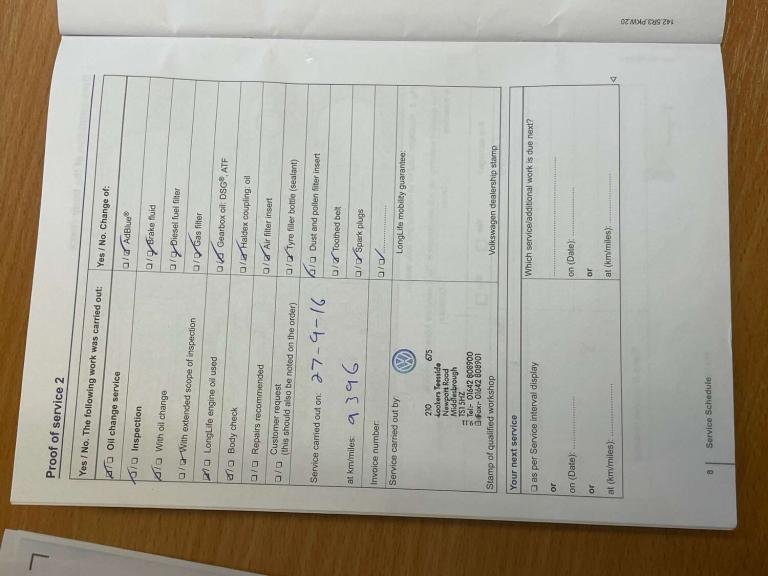 Proof of service 2
Yes / No. The following work was carried out:
☑ / ☐ Oil change service
☑ / ☐ Inspection
☑ / ☐ With oil change
☐ / ☑ With extended scope of inspection
☑ / ☐ LongLife engine oil used
☑ / ☐ Body check
☐ / ☐ Repairs recommended
☐ / ☐ Customer request
(this should also be noted on the order)
Service carried out on: 27-9-16
at km/miles: 9396
Invoice number:
Service carried out by:
210 675
Lookers Teesside
Newport Road
Middlesbrough
TS1 5HZ
Tel:- 01642 808900
Fax:- 01642 808901
Stamp of qualified workshop
Yes / No. Change of:
☐ / ☑ AdBlue®
☐ / ☑ Brake fluid
☐ / ☑ Diesel fuel filter
☐ / ☑ Gas filter
☐ / ☑ Gearbox oil: DSG®, ATF
☐ / ☑ Haldex coupling: oil
☐ / ☑ Air filter insert
☐ / ☑ Tyre filler bottle (sealant)
☑ / ☐ Dust and pollen filter insert
☐ / ☑ Toothed belt
☐ / ☑ Spark plugs
☐ / ☑ ....................
LongLife mobility guarantee:
Volkswagen dealership stamp
Your next service
☐ as per Service interval display
or
on (Date): ....................
or
at (km/miles): ....................
Which service/additional work is due next?
....................
on (Date): ....................
or
at (km/miles): ....................
8 | Service Schedule
142.5R3.PKW.20